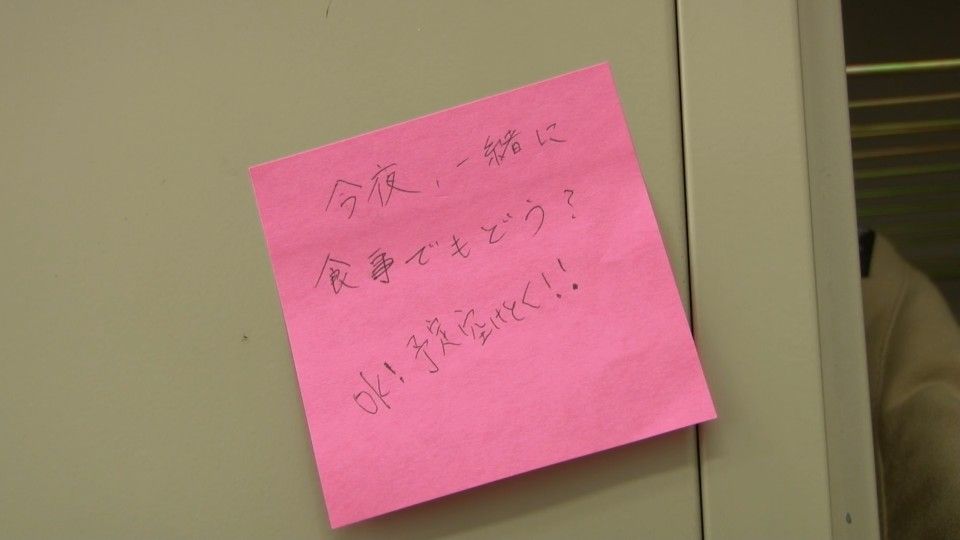 今夜、一緒に
食事でもどう？
OK！予定空けとく！！